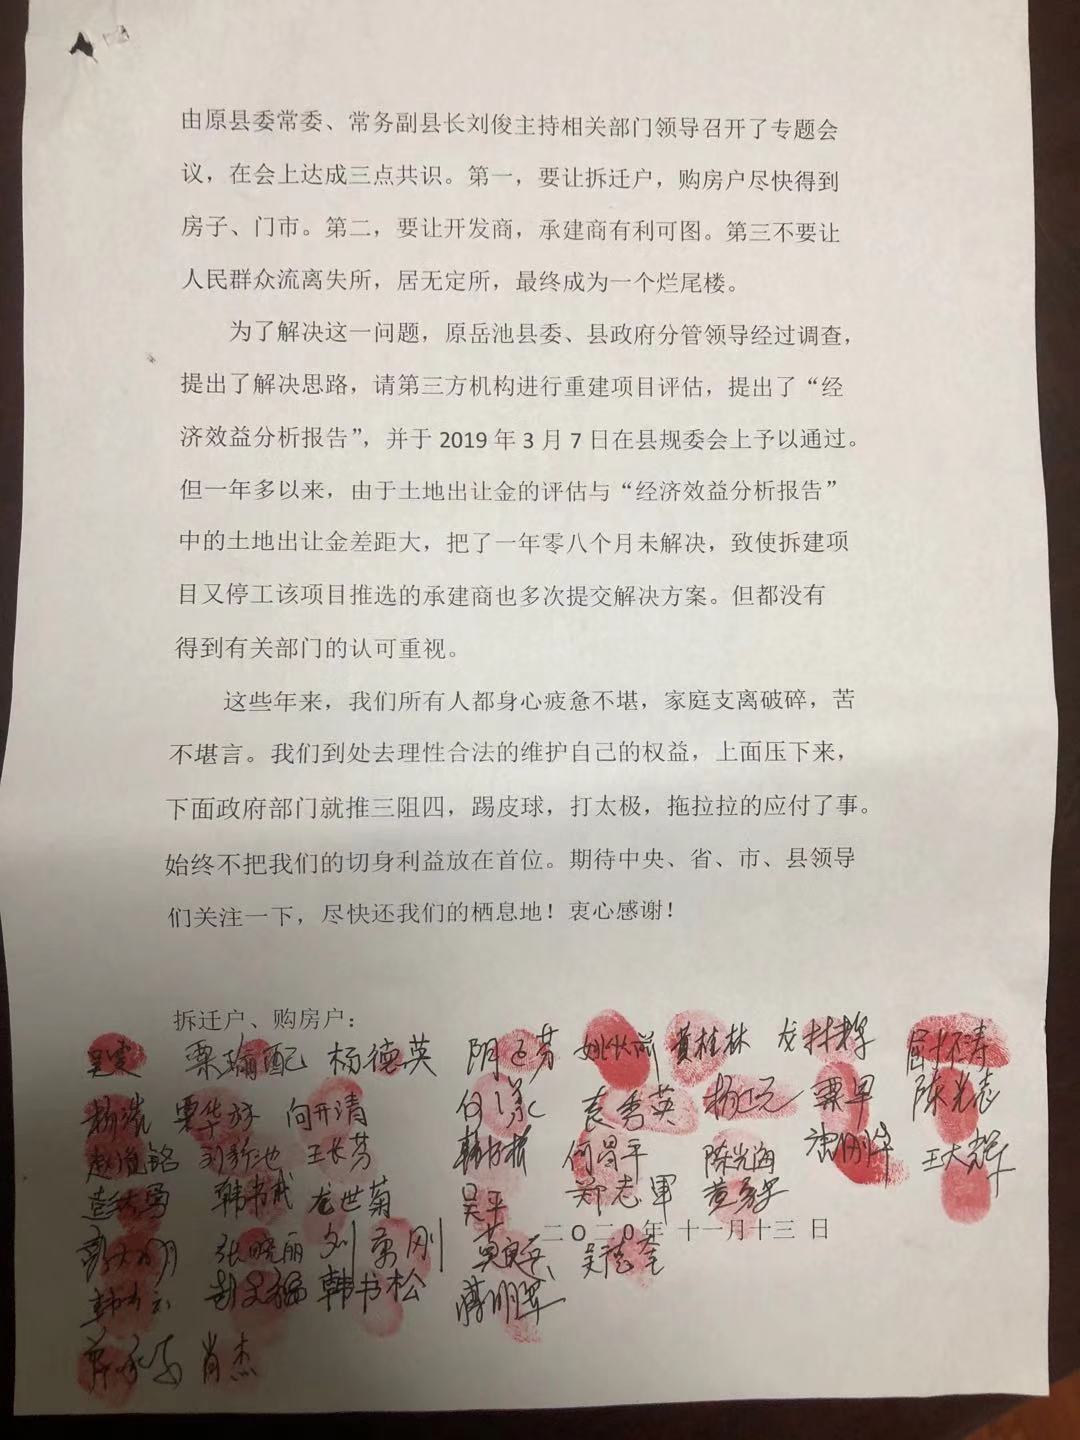 由原县委常委、常务副县长刘俊主持相关部门领导召开了专题会
议，在会上达成三点共识。第一，要让拆迁户，购房户尽快得到
房子、门市。第二，要让开发商，承建商有利可图。第三不要让
人民群众流离失所，居无定所，最终成为一个烂尾楼。
为了解决这一问题，原岳池县委、县政府分管领导经过调查，
提出了解决思路，请第三方机构进行重建项目评估，提出了“经
济效益分析报告”，并于 2019 年 3 月 7 日在县规委会上予以通过。
但一年多以来，由于土地出让金的评估与“经济效益分析报告”
中的土地出让金差距大，把了一年零八个月未解决，致使拆建项
目又停工该项目推选的承建商也多次提交解决方案。但都没有
得到有关部门的认可重视。
这些年来，我们所有人都身心疲惫不堪，家庭支离破碎，苦
不堪言。我们到处去理性合法的维护自己的权益，上面压下来，
下面政府部门就推三阻四，踢皮球，打太极，拖拉拉的应付了事。
始终不把我们的切身利益放在首位。期待中央、省、市、县领导
们关注一下，尽快还我们的栖息地！衷心感谢！
拆迁户、购房户：
杨德英 黄桂林
向开清 袁秀英 陈光志
王长芳 何昌平 陈光海 王大辉
龙世菊 吴平 郑志军
二〇二〇年 十一月十三 日
张晓丽 刘京刚
韩书松
肖杰